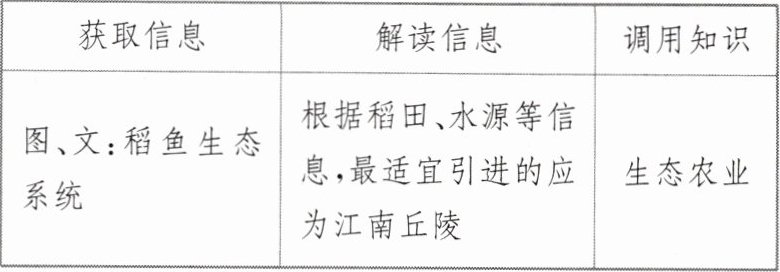 获取信息
解读信息
调用知识
图、文:稻鱼生态
系统
根据稻田、水源等信
息,最适宜引进的应
为江南丘陵
生态农业